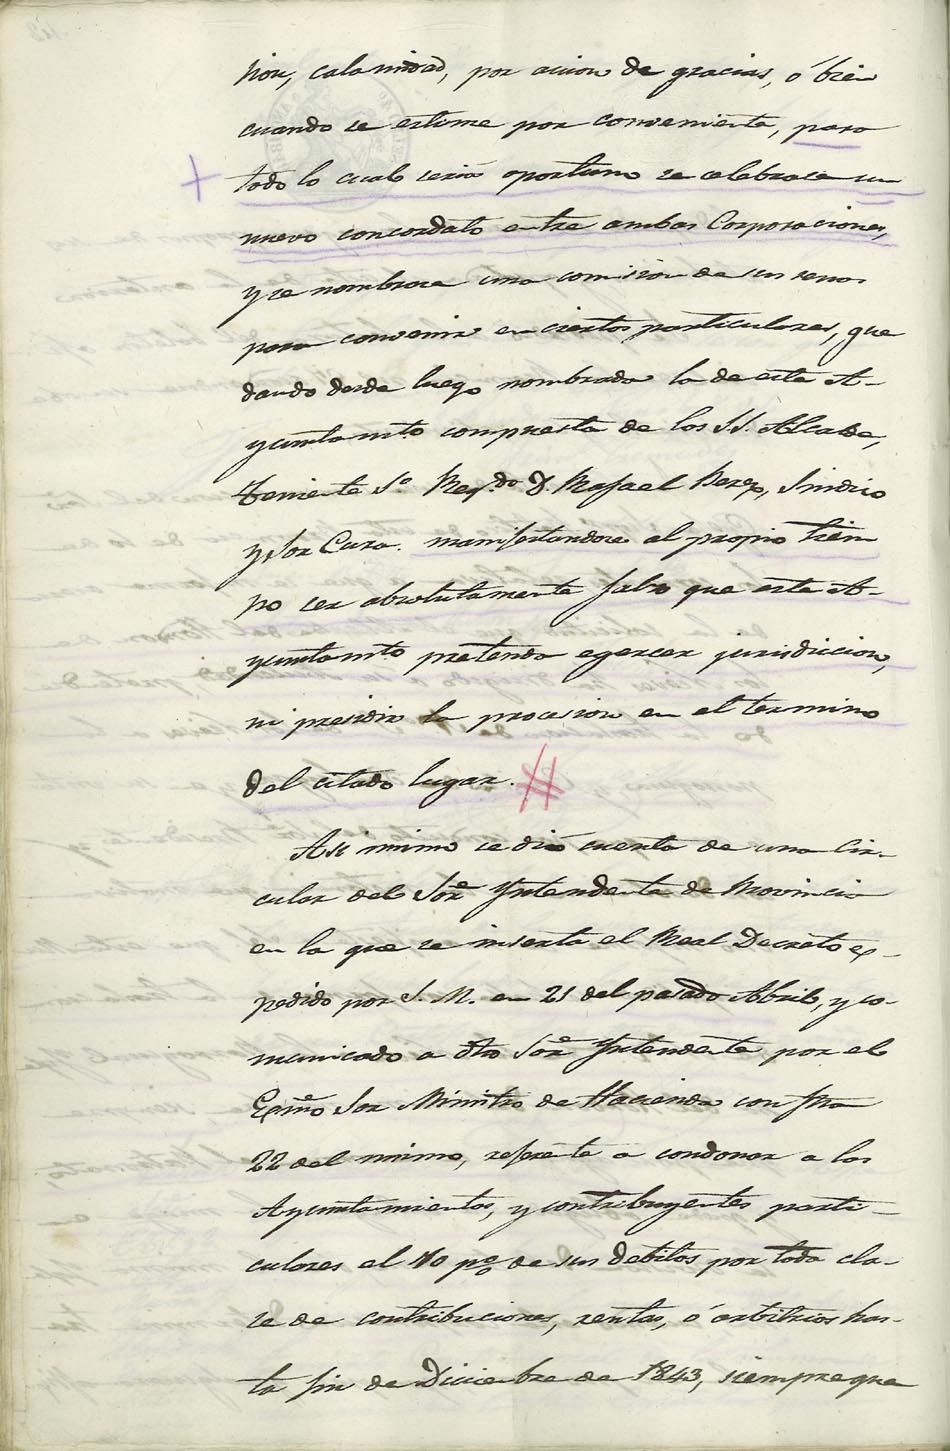 sion, calamidad, por accion de gracias, ó bien
cuando se estime por conveniente, para
todo lo cual seria oportuno se celebrase un
nuevo concordato entre ambas Corporaciones,
y se nombrase una comision de sus senos
para convenir en ciertos particulares, que
dando desde luego nombrada la de este A-
yuntamto. compuesta de los S.S. Alcalde,
Teniente 1º Regdor D. Rafael Perez, Sindico
y Sor Cura. manifestandose al propio tiem
po ser absolutamente falso que este A-
yuntamto. pretenda egercer jurisdiccion,
ni presidir la procesion en el termino
del citado lugar.
Asi mismo se dió cuenta de una Cir-
cular del Sor. Yntendente de Provincia
en la que se inserta el Real Decreto ex-
pedido por S. M. en 21 del pasado Abril, y co-
municado a dho Sor. Yntendente por el
Exmo Sor Ministro de Hacienda con fha
22 del mismo, referente a condonar a los
Ayuntamientos, y contribuyentes parti-
culares el 10 pº de sus debitos por toda cla-
se de contribuciones, rentas, ó arbitrios has-
ta fin de Diciembre de 1843, siempre que